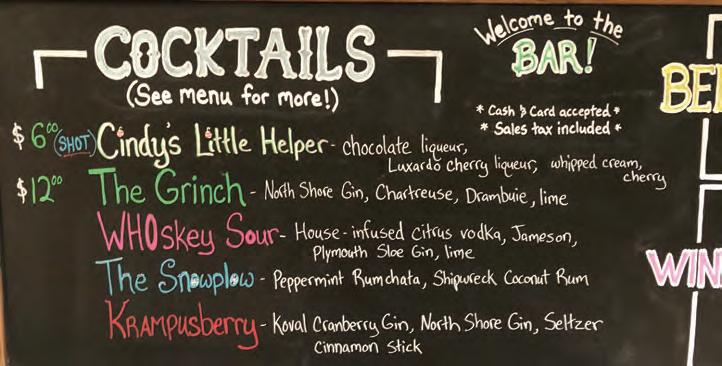 COCKTAILS
(See menu for more!)
Welcome to the
BAR!
* Cash & Card accepted *
* Sales tax included *
$6.00 (SHOT) Cindy's Little Helper - chocolate liqueur,
Luxardo cherry liqueur, whipped cream,
cherry
$12.00 The Grinch - North Shore Gin, Chartreuse, Drambuie, lime
WHOskey Sour - House-infused citrus vodka, Jameson,
Plymouth Sloe Gin, lime
The Snowplow - Peppermint Rumchata, Shipwreck Coconut Rum
KRAMPUSBERRY - Koval Cranberry Gin, North Shore Gin, Seltzer
Cinnamon stick
BE
WIN